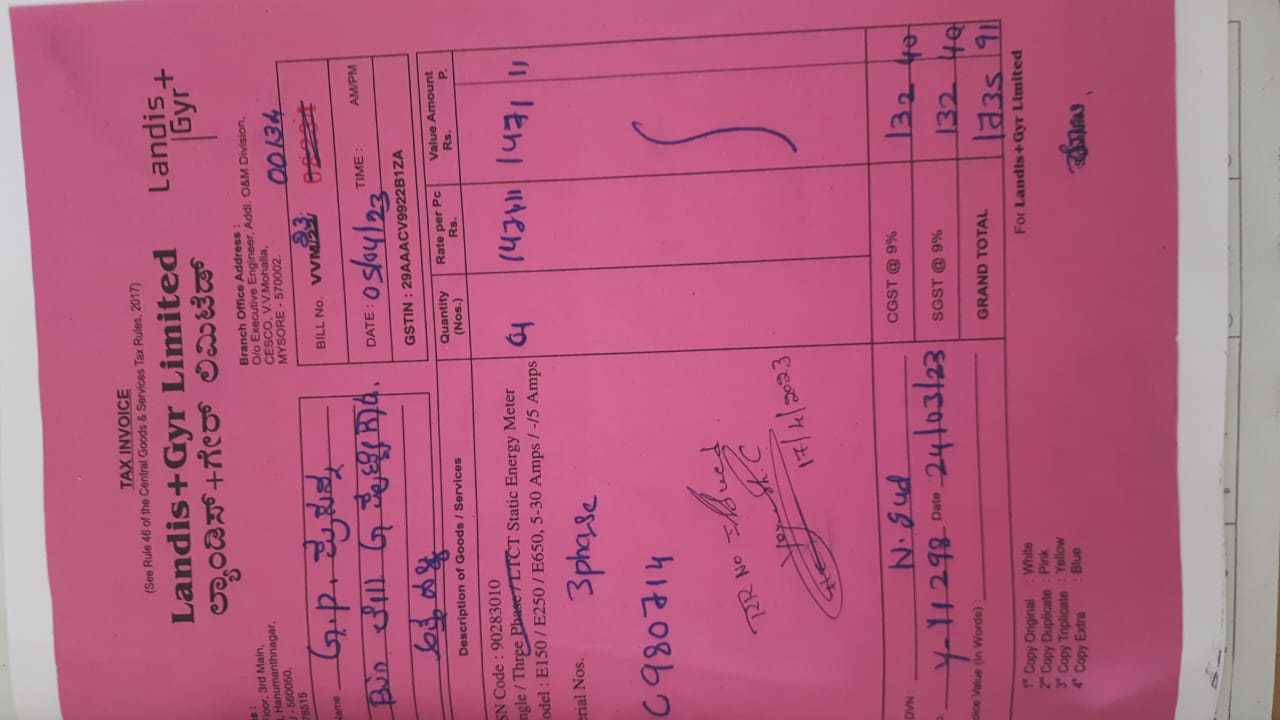 TAX INVOICE
(See Rule 46 of the Central Goods & Services Tax Rules, 2017)
Landis+Gyr Limited
ಲ್ಯಾಂಡಿಸ್+ಗೇರ್ ಲಿಮಿಟೆಡ್
Landis
Gyr+
loor, 3rd Main,
Hanumanthnagar,
- 560050.
78515
Branch Office Address :
O/o Executive Engineer, Addl. O&M Division,
CESCO, V.V.Mohalla,
MYSORE - 570002.
00134
BILL No. VVM
DATE : 05/04/23 TIME : AM/PM
GSTIN : 29AAACV9922B1ZA
Name
Description of Goods / Services
Quantity (Nos.)
Rate per Pc Rs.
Value Amount Rs. P.
SN Code : 90283010
ngle / Three Phase / LTCT Static Energy Meter
odel : E150 / E250 / E650, 5-30 Amps / -/5 Amps
01 1471 1471
erial Nos. 3phase
C980714
RR No
17/4/2023
DVN : N.gud
CGST @ 9% 132 40
Y-Y11298 Date 24/03/23
SGST @ 9% 132 40
oice Value (In Words) :
GRAND TOTAL 1735 91
For Landis+Gyr Limited
1° Copy Original : White
2° Copy Duplicate : Pink
3° Copy Triplicate : Yellow
4° Copy Extra : Blue